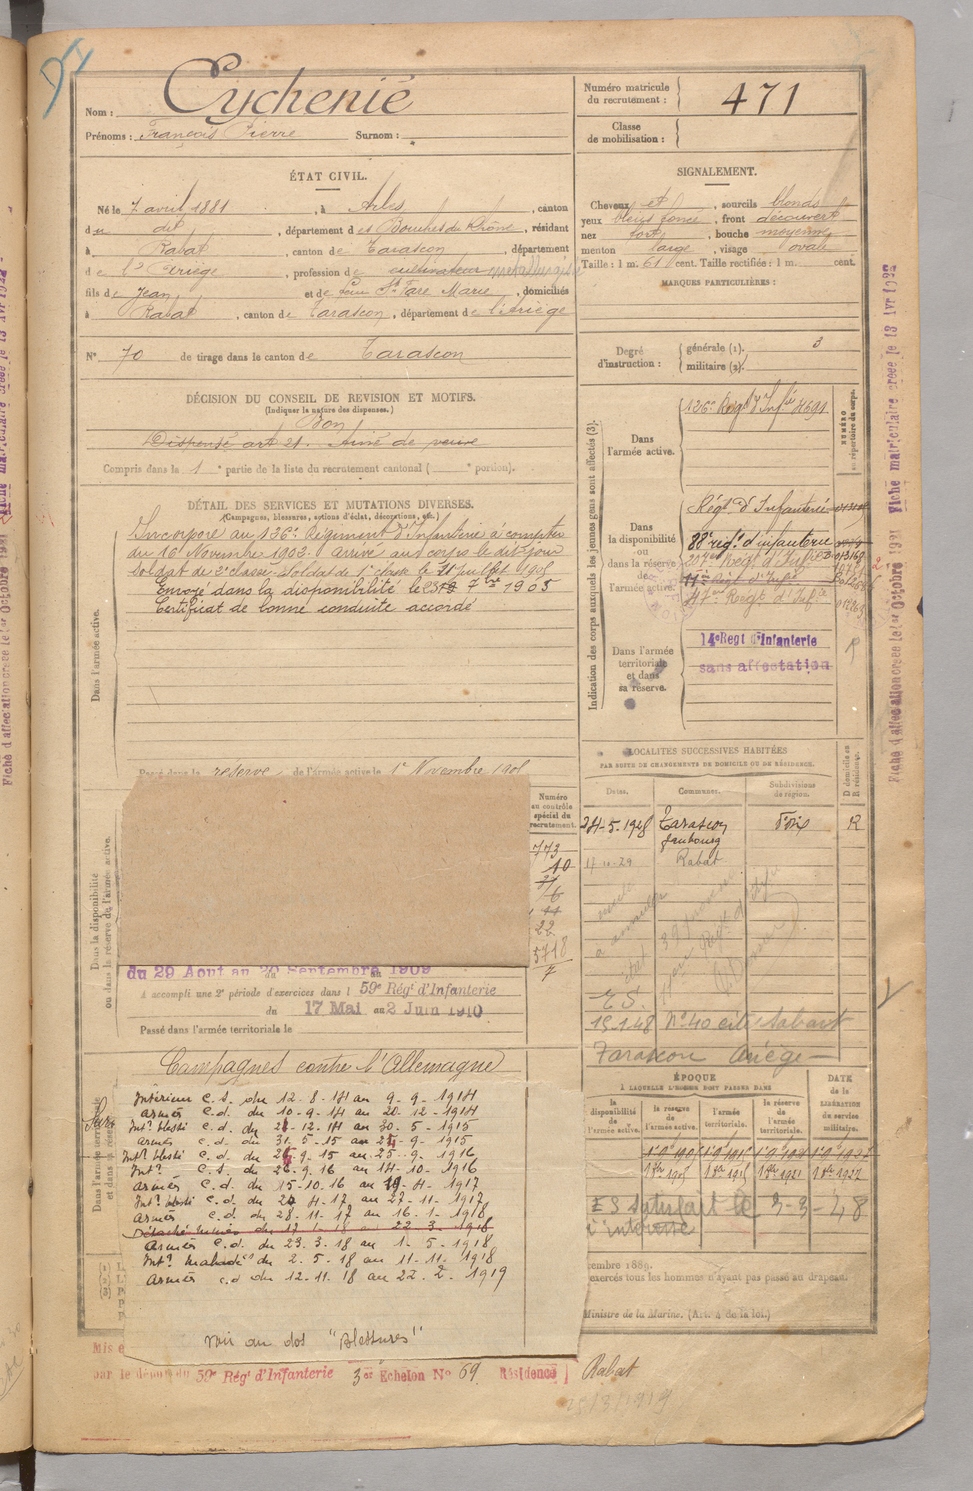 Nom : Eychenié
Prénoms : François Pierre Surnom :
Numéro matricule du recrutement : 471
Classe de mobilisation :
ÉTAT CIVIL.
Né le 7 avril 1881, à Arles, canton
du dit, département des Bouches du Rhône, résidant
à Rabat, canton de Tarascon, département
de l'Ariège, profession de cultivateur métallurgiste
fils de Jean et de feue St Fare Marie, domiciliés
à Rabat, canton de Tarascon, département de l'Ariège
N° 70 de tirage dans le canton de Tarascon
SIGNALEMENT.
Cheveux et, sourcils blonds
yeux bleus foncé, front découvert
nez fort, bouche moyenne
menton large, visage ovale
Taille : 1 m. 61 cent. Taille rectifiée : 1 m. cent.
MARQUES PARTICULIÈRES :
Degré d'instruction : générale (1). 3
militaire (2).
DÉCISION DU CONSEIL DE REVISION ET MOTIFS.
(Indiquer la nature des dispenses.)
Bon
Dispensé art 21. Aîné de veuve
Compris dans la 1e partie de la liste du recrutement cantonal ( e portion).
DÉTAIL DES SERVICES ET MUTATIONS DIVERSES.
(Campagnes, blessures, actions d'éclat, décorations, etc.)
Dans l'armée active.
Incorporé au 126e Régiment d'Infanterie à compter
du 16 Novembre 1902. arrivé au corps le dit jour
soldat de 2e classe. Soldat de 1e classe le 21 Juillet 1903
Envoyé dans la disponibilité le 7bre 1903
Certificat de bonne conduite accordé
Passé dans la réserve de l'armée active le 1er Novembre 190
Indication des corps auxquels les jeunes gens sont affectés (3).
NUMÉRO au répertoire du corps.
Dans l'armée active.
126e Régt d'Infie 4691
Dans la disponibilité ou dans la réserve de l'armée active.
Régt d'Infanterie
88e régt d'infanterie
207e Régt d'Inf.
11e Régt d'Infie
Régt d'Infie
Dans l'armée territoriale et dans sa réserve.
14e Regt d'Infanterie
sans affectation
Fiche matriculaire créée le 13 Avr 1922
Fiche d'affectation créée le 1er Octobre 1931
LOCALITÉS SUCCESSIVES HABITÉES
PAR SUITE DE CHANGEMENTS DE DOMICILE OU DE RÉSIDENCE.
Dates. Communes. Subdivisions de région. D domicile ou R résidence.
24-5-1928 Tarascon faubourg Foix R
17 10-29 Rabat
E S.
15.1.48 N° 40 cité Sabart
Tarascon Ariège
Dans la disponibilité ou dans la réserve de l'armée active.
Numéro au contrôle spécial du recrutement.
773
10
6
22
5718
7
du 29 Aout au Septembre 1909
A accompli une 2e période d'exercices dans l 59e Régt d'Infanterie
du 17 Mai au 2 Juin 1910
Passé dans l'armée territoriale le
Campagnes contre l'Allemagne
Intérieur C.S. du 12-8-14 au 9-9-1914
Armés C.d. du 10-9-14 au 20-12-1914
Intr blessé C.d. du 21-12-14 au 30-5-1915
Armés C.d. du 31-5-15 au 25-9-1915
Intr blessé C.d. du 26-9-15 au 25-9-1916
Intr C.S. du 26.9.16 au 14-10-1916
Armés C.d. du 15-10-16 au 19-4-1917
Intr blessé C.d. du 20 4-17 au 27-11-1917
Armés C.d. du 28-11-17 au 16-1-1918
Détaché mines du 17-1-18 au 22-3-1918
Armés C.d. du 23.3.18 au 1-5-1918
Intr malade du 2.5.18 au 11-11-1918
Armés c.d du 12.11.18 au 22-2-1919
Voir au dos "Blessures"
ÉPOQUE À LAQUELLE L'HOMME DOIT PASSER DANS
la disponibilité de l'armée active. la réserve de l'armée active. l'armée territoriale. la réserve de l'armée territoriale.
DATE de la LIBÉRATION du service militaire.
E S satisfait le 3-3-48
à l'intéressé
cembre 1889.
exercés tous les hommes n'ayant pas passé au drapeau.
Ministre de la Marine. (Art. 4 de la loi.)
par le dépôt du 59e Régt d'Infanterie 3er Echelon No 69 Résidence Rabat
25/3/1919